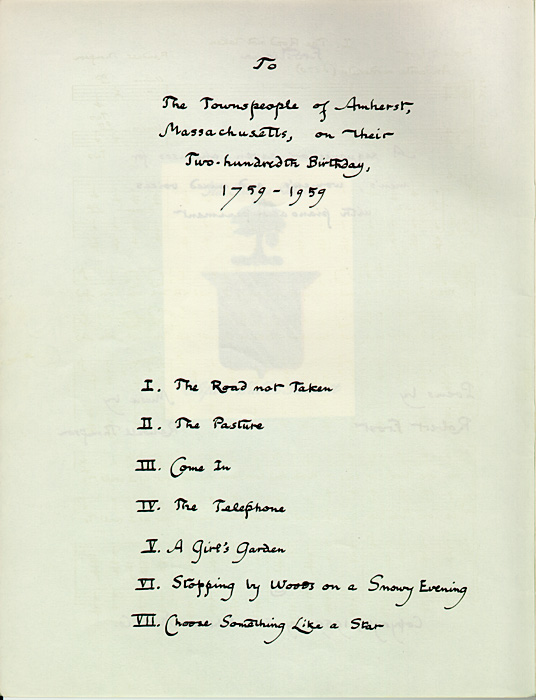 To
The Townspeople of Amherst,
Massachusetts, on their
Two-hundredth Birthday,
1759 - 1959
I. The Road not Taken
II. The Pasture
III. Come In
IV. The Telephone
V. A Girl's Garden
VI. Stopping by Woods on a Snowy Evening
VII. Choose Something Like a Star